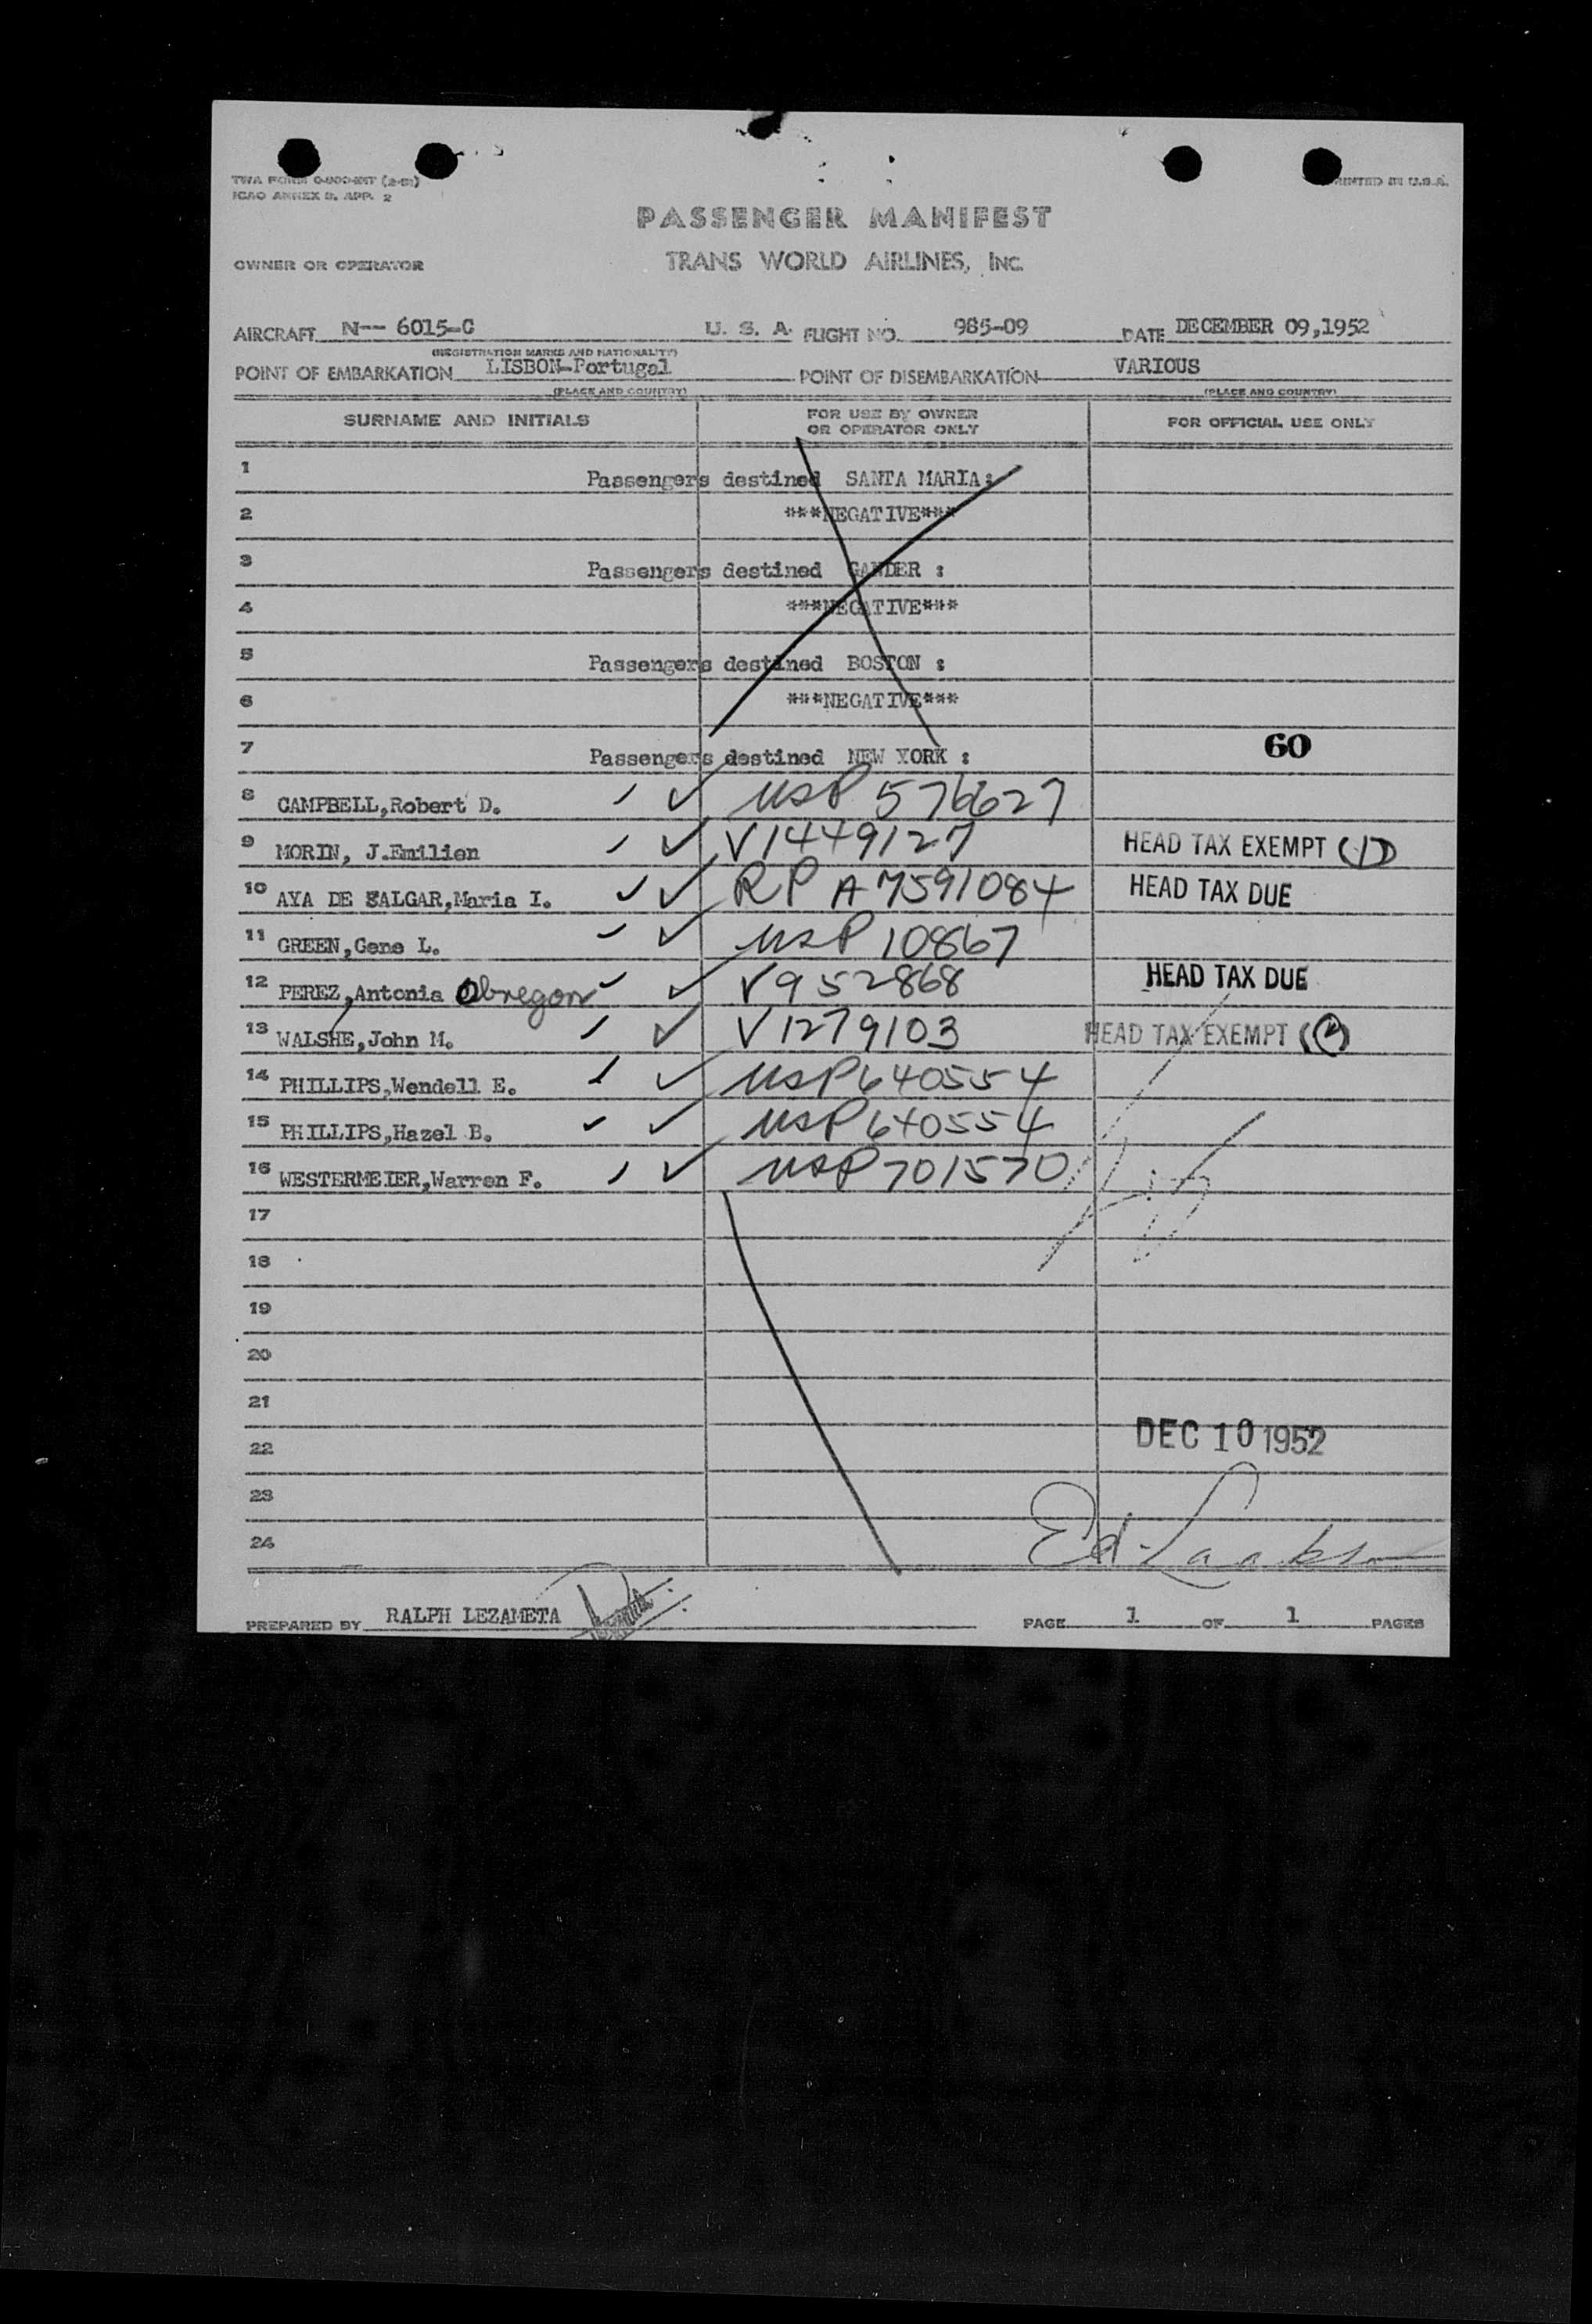 ICAO ANNEX 9. APP. 2
PRINTED IN U.S.A.
PASSENGER MANIFEST
OWNER OR OPERATOR TRANS WORLD AIRLINES, INC.
AIRCRAFT N-- 6015-C U. S. A. FLIGHT NO. 985-09 DATE DECEMBER 09,1952
(REGISTRATION MARKS AND NATIONALITY)
POINT OF EMBARKATION LISBON-Portugal POINT OF DISEMBARKATION VARIOUS
(PLACE AND COUNTRY) (PLACE AND COUNTRY)
SURNAME AND INITIALS FOR USE BY OWNER OR OPERATOR ONLY FOR OFFICIAL USE ONLY
1 Passengers destined SANTA MARIA:
2 ***NEGATIVE***
3 Passengers destined GANDER :
4 ***NEGATIVE***
5 Passengers destined BOSTON :
6 ***NEGATIVE***
7 Passengers destined NEW YORK : 60
8 CAMPBELL,Robert D. USP 576627
9 MORIN, J.Emilien V1449127 HEAD TAX EXEMPT (1)
10 AYA DE SALGAR,Maria I. RP A7591084 HEAD TAX DUE
11 GREEN,Gene L. USP 10867
12 PEREZ,Antonia Obregon V952868 HEAD TAX DUE
13 WALSHE,John M. V1279103 HEAD TAX EXEMPT
14 PHILLIPS,Wendell E. USP 640554
15 PHILLIPS,Hazel B. USP 640554
16 WESTERMEIER,Warren F. USP 701570
17
18
19
20
21
22 DEC 10 1952
23
24 Ed
PREPARED BY RALPH LEZAMETA PAGE 1 OF 1 PAGES